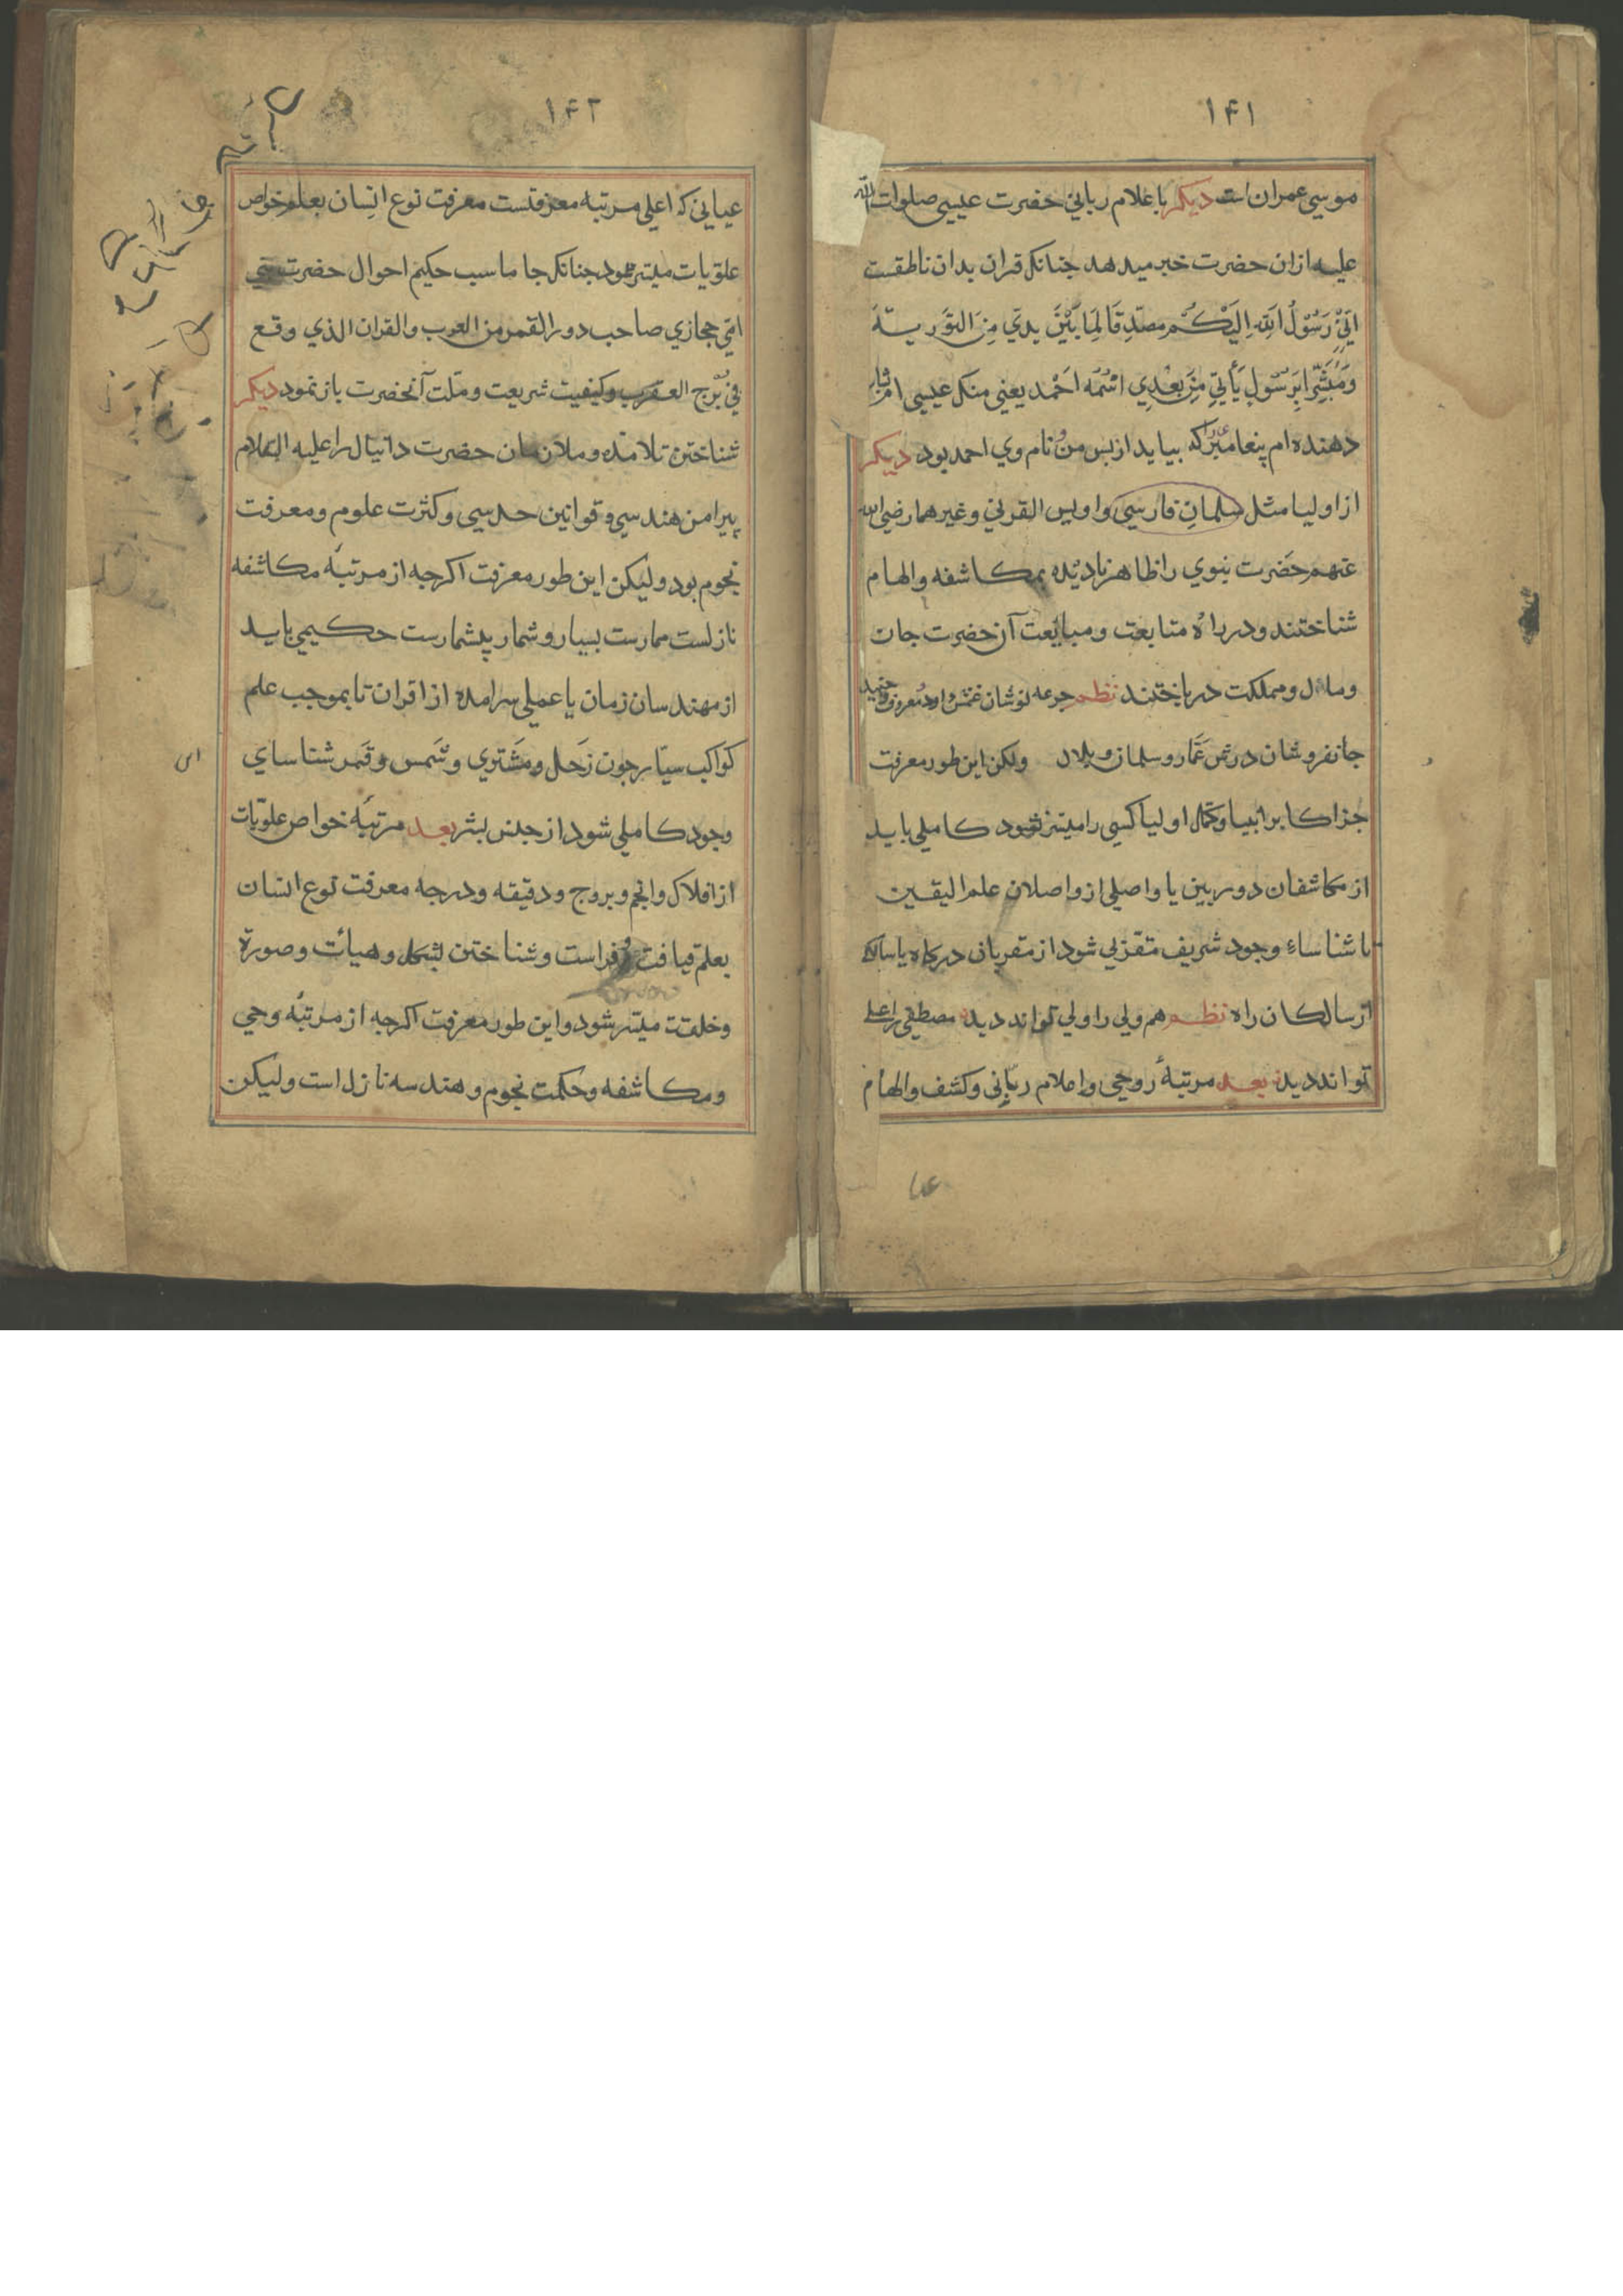 ۱۴۱
موسی عمران است دیکر باعلام ربانی حضرت عیسی صلوات الله
علیه ازان حضرت خبر میدهد جنانکه قران بدان ناطقست
اِنّی رَسُوْلُ اللّٰهِ اِلَیْکُم مصدِّقًا لِمَا بَیْنَ یدیّ مِنَ التوریة
وَمُبَشّرًا بِرَسُوْلٍ یَأتی مِنْ بَعْدِی اسْمُه اَحْمد یعنی منکه عیسی ام بشارت
دهنده ام پیغامبر را که بیاید از پس من و نام وی احمد بود دیکر
از اولیا مثل سلمانِ فارسی و اویس القرنی و غیرهما رضی الله
عنهم حضَرت نبوی را ظاهر نادیده بمکاشفه و الهام
شناختند و در راه متابعت و مبایعت آن حضرت جان
و مال و مملکت درباختند نظم جرعه نوشان غمش داود و معروف و جنید
جانفروشان درش عمّار و سلمان و بلال ولکن این طور معرفت
جز اکابر انبیا و کمّل اولیا کسی را میسّر نشود کاملی باید
از مکاشفان دوربین یا واصلی از واصلان علم الیقین
تا شناساءِ وجود شریف مقربی شود از مقربان درکاه یا سالک
از سالکان راه نظم هم ولی را ولی تواند دید مصطفی را علی
تواند دید بعد مرتبهٔ روحی و اعلام ربّانی و کشف و الهام
۱۴۲
عیانی که اعلی مرتبه معرفتست معرفت نوع انسان بعلم خواص
علویات میسّر شود جنانکه جاماسب حکیم احوال حضرت نبی
امّی حجازی صاحب دور القمر من العرب و القران الذی وقع
فی بُرْج العقرب و کیفیت شریعت و ملّت آنحضرت باز نمود دیکر
شناختن تلامذه و ملازمان حضرت دانیال را علیه السلام
پیرامن هندسی و قوانین حدسی و کثرت علوم و معرفت
نجوم بود ولیکن این طور معرفت اکرچه از مرتبهٔ مکاشفه
نازلست ممارست بسیار و شمار پیشمارست حکیمی باید
از مهندسان زمان یا عملی سرامده از اقران تا بموجب علم
کواکب سیّار چون زَحل و مشتری و شمس و قمر شناسای
وجود کاملی شود از جنس بشر بعد مرتبهٔ خواص علویّات
از افلاک و انجم و بروج و دقیقه و درجه معرفت نوع انسان
بعلم قیافت و فراست و شناختن بشکل و هیأت و صورة
و خلقت میسّر شود و این طور معرفت اکرچه از مرتبهٔ وحی
و مکاشفه و حکمت نجوم و هندسه نازل است ولیکن